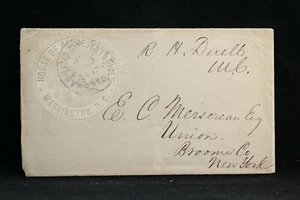 HOUSE OF REPRESENTATIVES
WASHINGTON, D.C.
R. H. Duell
M.C.
E. C. Mersereau Esq
Union.
Broome Co
New York